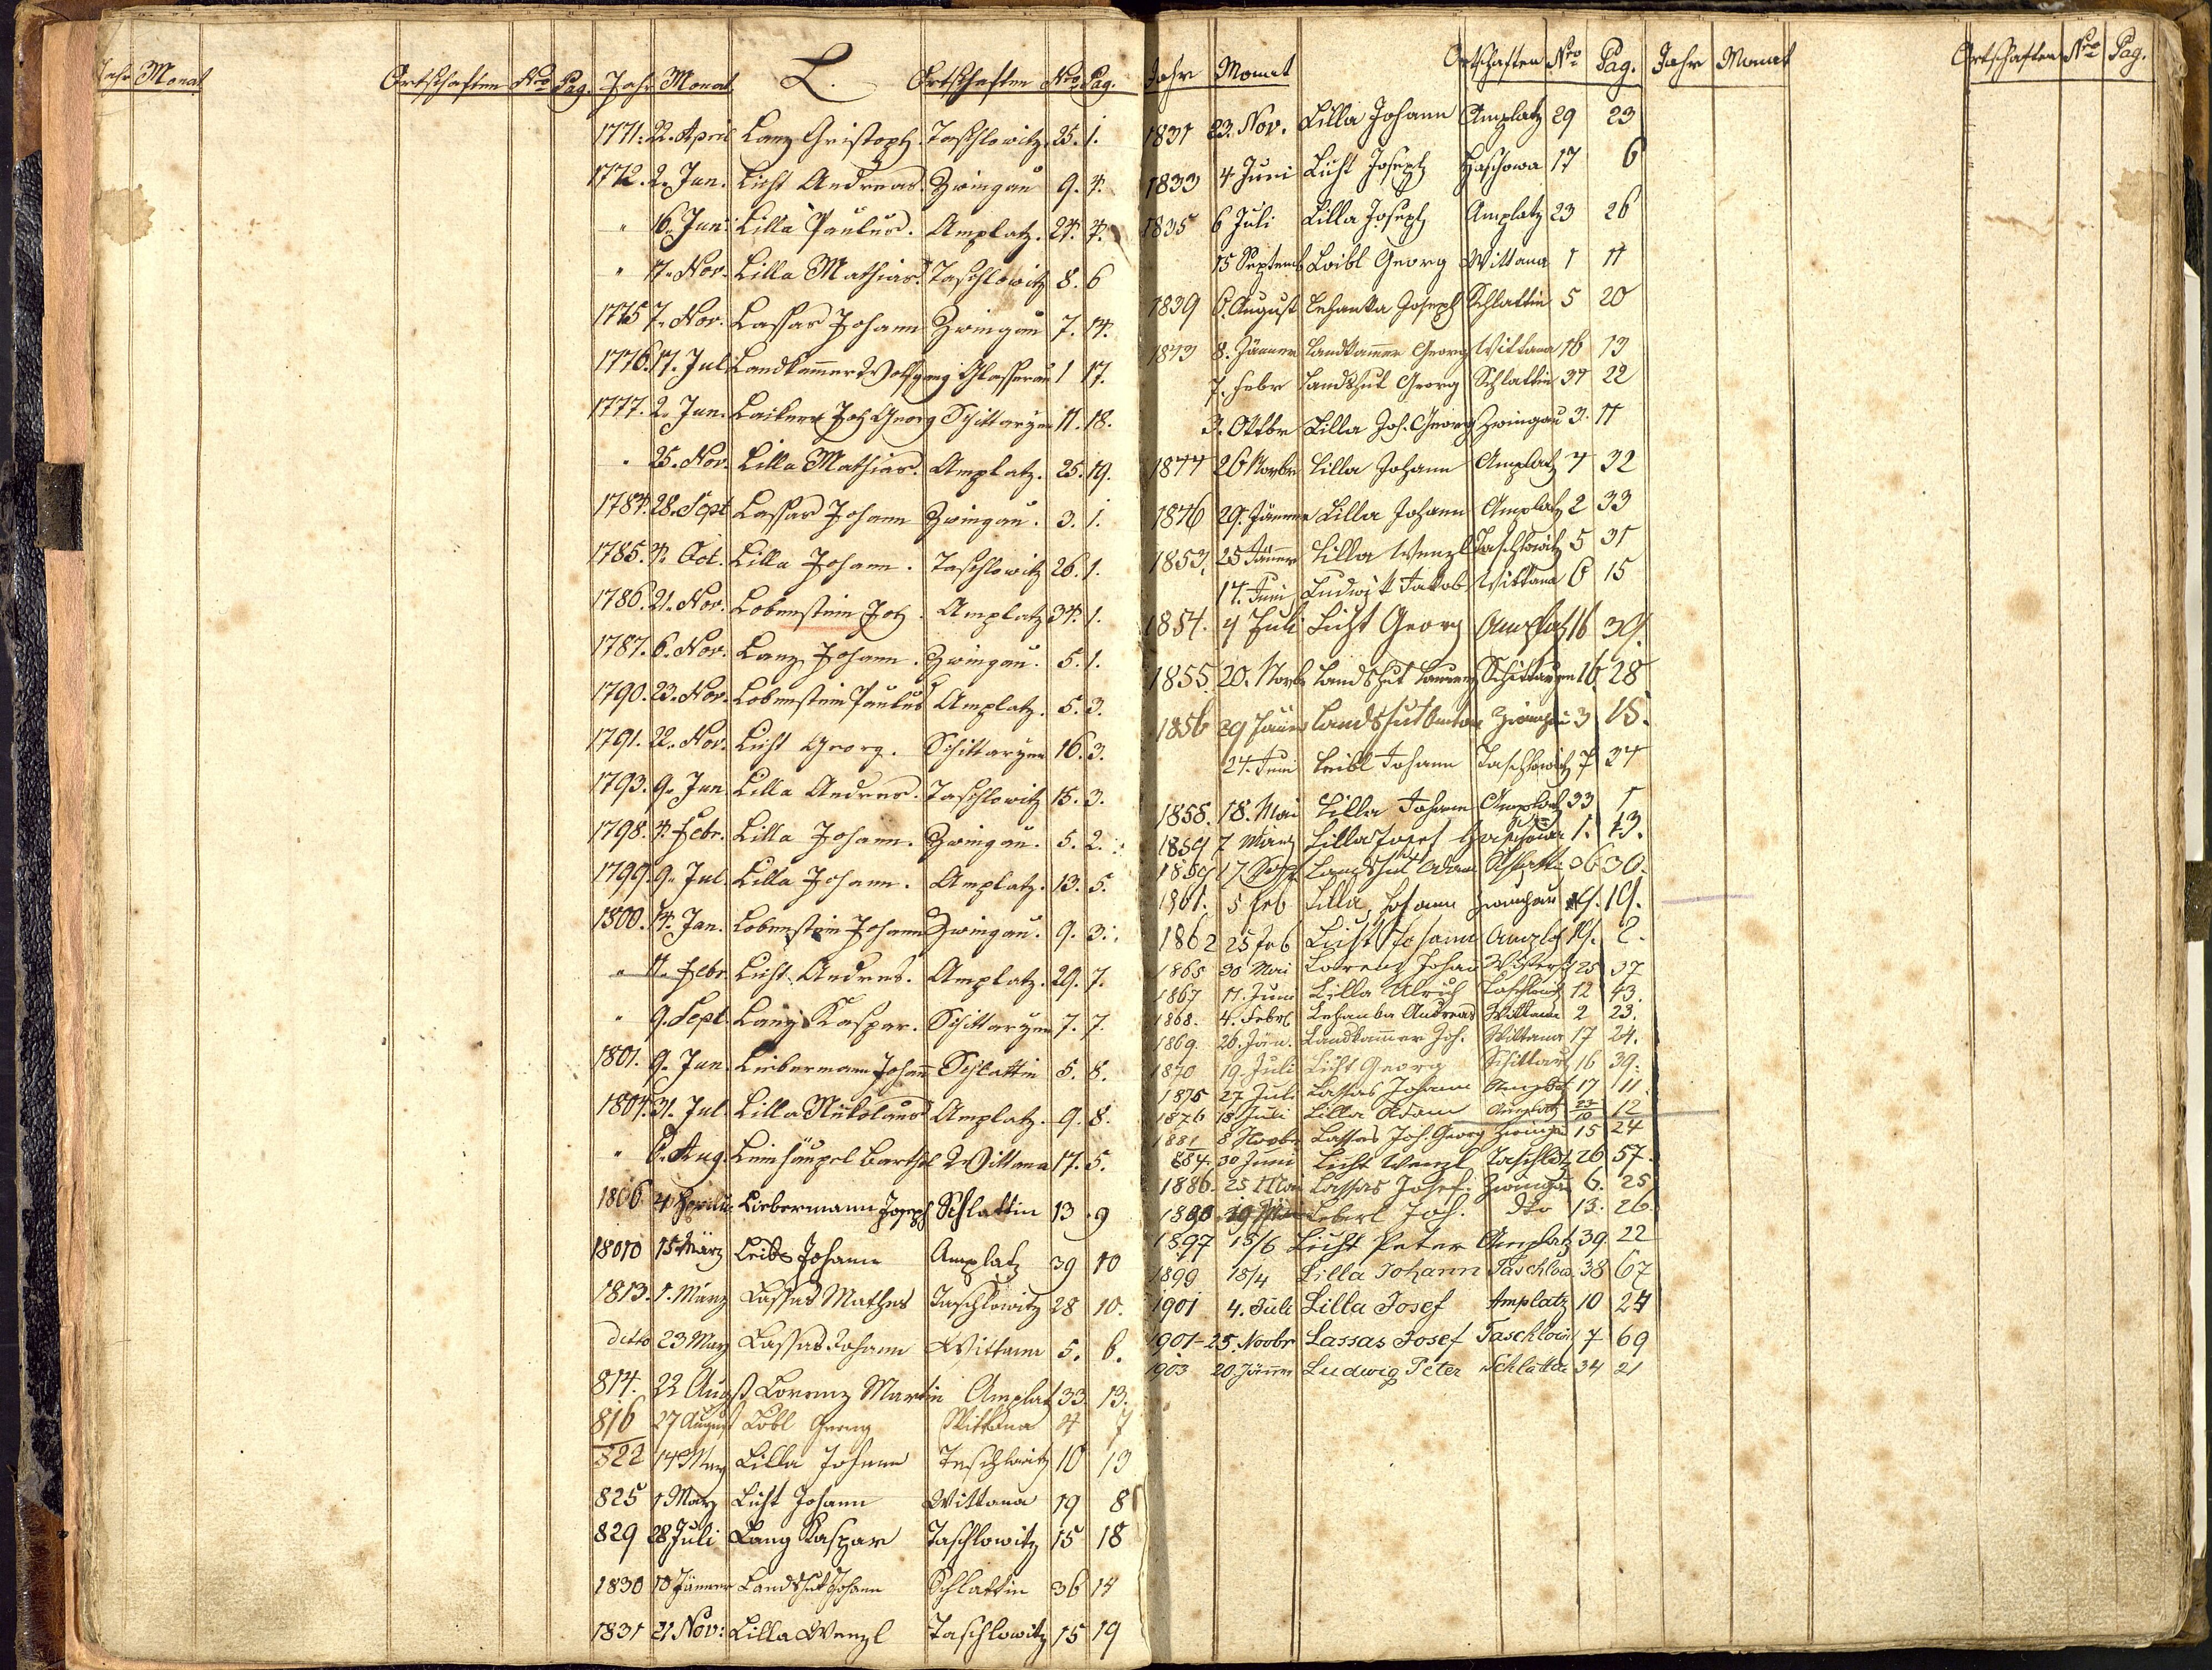 Jahr Monat Ortschaften Nro Pag.
Jahr Monat L. Ortschaften Nro Pag.
1771. 22. April Lanz Cristoph. Taschlowitz. 25. 1.
1772. 2. Jun. Licht Andreas. Zwingau 9. 4.
" 16. Jun. Lilla Paulus. Amplatz. 24. 4.
" 17. Nov. Lilla Mathias. Taschlowitz 8. 6
1775 7. Nov. Lassas Johann Zwingau 7. 14.
1776. 17. Jul Landkammer Wolfgang Glasserau 1 17.
1777. 2. Jun. Joh Georg Schittarzen 11. 18.
" 25. Nov. Lilla Mathias. Amplatz. 25. 19.
1784. 28. Sept Lassas Johann Zwingau. 3. 1.
1785. 4. Oct. Lilla Johann. Taschlowitz 26. 1.
1786. 21. Nov. Lobenstein Joh. Amplatz 34. 1.
1787. 6. Nov. Lanz Johann. Zwingau. 5. 1.
1790. 23. Nov. Lobenstein Paulus Amplatz. 5. 3.
1791. 22. Nov. Licht Georg. Schittarzen 16. 3.
1793. 9. Jun Lilla Andres. Taschlowitz 15. 3.
1798. 4. Febr. Lilla Johann. Zwingau. 5. 2.
1799. 9. Jul. Lilla Johann. Amplatz. 13. 5.
1800. 14. Jan. Lobenstein Johann Zwingau. 9. 3.
" 11. Febr. Licht Andres. Amplatz. 29. 7.
" 9. Sept. Lanz Kaspar. Schittarzen 7. 7.
1801. 9. Jun. Liebermann Johann Schlattin 5. 8.
1804. 31. Jul Lilla Nikolaus Amplatz. 9. 8.
" 6. Aug. Barthol Wittana 17. 5.
1806 4 Liebermann Joseph Schlattin 13. 9
18010 15 März Leibl Johann Amplatz 39 10
1813. 1. März Lassas Mathes Taschlowitz 28 10.
detto 23 May Lassas Johann Wittana 5. 6.
814. 22 Augst Lorenz Martin Amplatz 33 13.
816 27 August Löbl Georg Wittana 4 7
822 14 May Lilla Johann Taschlowitz 10 13
825 1 März Licht Johann Wittana 19 8
829 28 Juli Lang Kaspar Taschlowitz 15 18
1830 10 Jänner Landshut Johann Schlattin 36 14
1831 21 Nov: Lilla Wenzl Taschlowitz 15 19
Jahr Monat Ortschaften Nro Pag.
1831 23. Nov. Lilla Johann Amplatz 29 23
1833 4 Juni Licht Joseph Haschowa 17 6
1835 6 Juli Lilla Joseph Amplatz 23 26
15 Septemb Loibl Georg Wittana 1 11
1839 6. August Lehanka Joseph Schlattin 5 20
1843 8. Jänner Landkammer Georg Wittana 16 13
7. Febr Landshut Georg Schlattin 34 22
3. Oktbr Lilla Joh. Georg Zwingau 3. 11
1844 26 Novbr Lilla Johann Amplatz 4 32
1846 29. Jänner Lilla Johann Amplatz 2 33
1853, 25 Jänner Lilla Wenzl Taschlowitz 5 31
14. Juni Ludwik Jakob Wittana 6 15
1854. 4 Juli Licht Georg Amplatz 16 39.
1855. 20. Novb Landshut Schittarzen 16 28
1856 29 Jänner Landshut Anton Zwingau 3 15.
24. Juni Leibl Johann Taschlowitz 7 24
1858. 18. Mai Lilla Johann Amplatz 33 1
1859 7 März Lilla Josef Haschowa 1. 13.
1859 17 Sept Landshut Adam Schlattin 36 30.
1861. 5 Feb Lilla, Johann Zwingau 4. 19.
1862 25 Feb Licht Johann Amplatz 19. 2.
1865 30 Mai Lorenz Johan 25 37
1867 11. Juni Lilla Ulrich Taschlowitz 12 43.
1868. 4. Febr Lehanka Andreas Wittana 2 23.
1869. 26. Jän. Landkammer Joh. Wittana 17 24.
1870 19. Juli Licht Georg Schittarz 16 39.
1875 27 Juli Lassas Johann Amplatz 17 11.
1876 18 Juli Lilla Adam Amplatz 12
1881 8 Novbr Lassas Joh. Georg Zwingau 15 24
884. 30 Juni Licht Wenzl Taschlotz 26 57.
1886. 25 Mai Lassas Josef. Zwingau 6. 25
1890 Leberl Joh. dto 13. 26.
1897 15/6 Licht Peter Amplatz 39 22
1899 18/4 Lilla Johann Taschlow. 38 67
1901 4. Juli Lilla Josef Amplatz 10 24
1901- 25. Novbr Lassas Josef Taschlowi 7 69
1903 20. Jänner Ludwig Peter Schlatti 34 21
Jahr Monat Ortschaften Nro Pag.